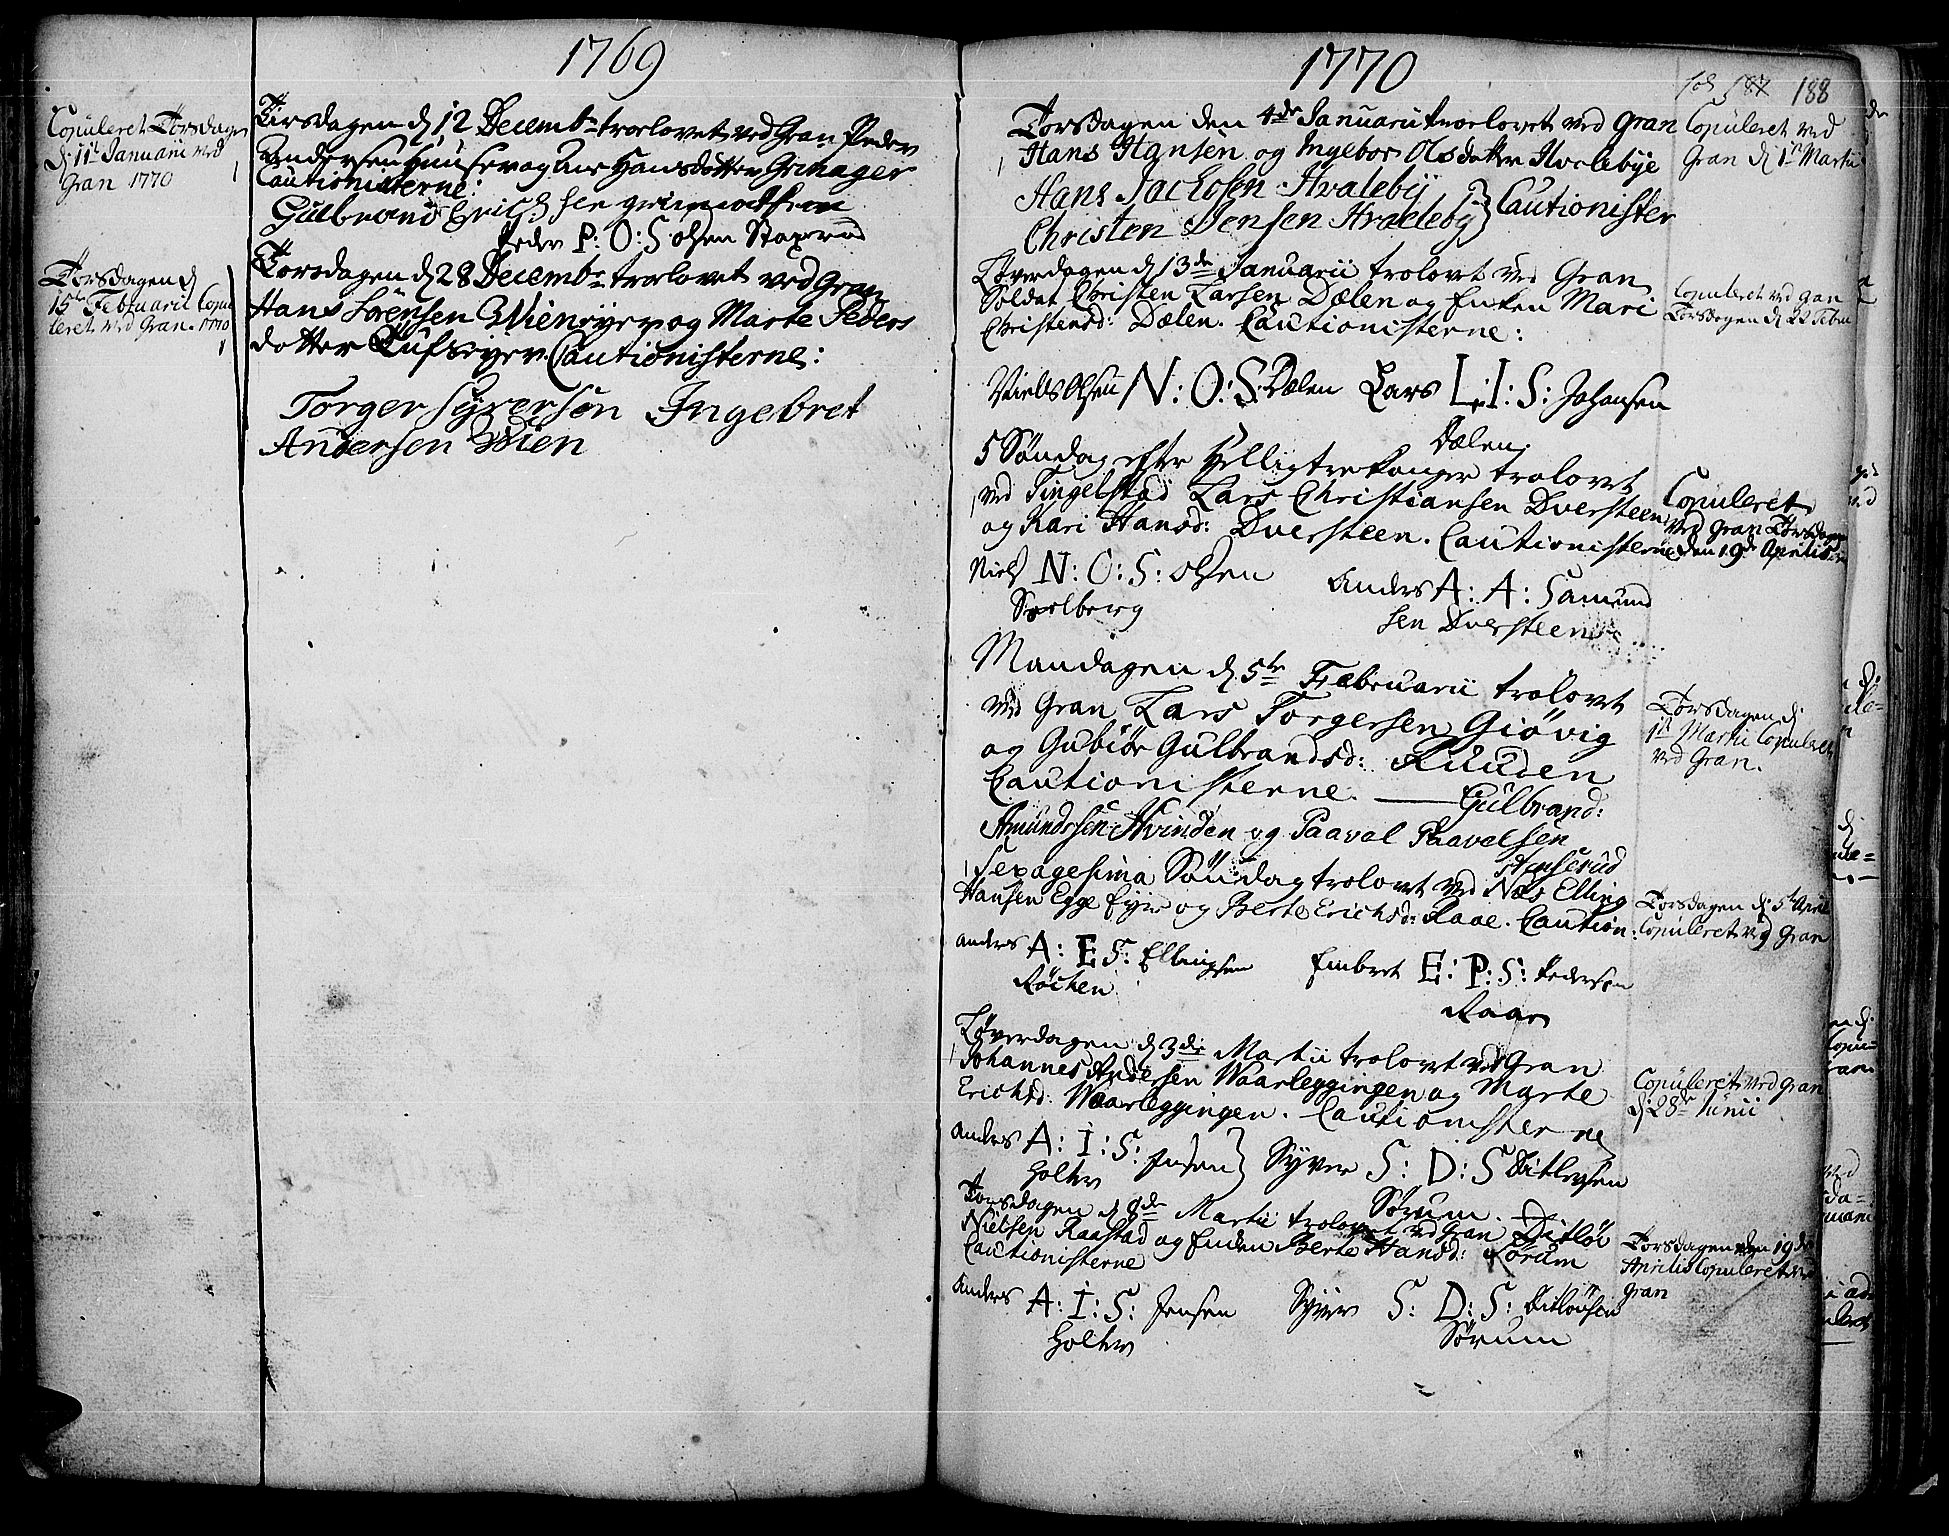 1769
Copuleret Torsdagen
d. 11te Januarii ved
Gran 1770
Tirsdagen d. 12 Decembr trolovet ved Gran Peder
Andersen og Ane Hansdotter Grinager
Cautionisterne:
Gulbrand Erichsen
Peder P: O: S olsen
Torsdagen d.
15te Februarii Copu
leret ved Gran. 1770
Torsdagen d. 28 Decembr trolovet ved Gran
Hans Sørensen Wiensyer og Marte Peders
dotter Tufseyer Cautionisterne:
Torger Syversøn Ingebret
Andersen Wien
1770
fol 187 188
Torsdagen den 4de Januarii trolovet ved Gran
Hans Hansen og Ingebor Olsdatter Hvalebye
Hans Jacobsen Hvaleby
Christen Jensen Hvaleby } Cautionister
Copuleret ved
Gran d. 1te Martii
Løverdagen d. 13de Januarii trolovt ved Gran
Soldat Christen Larsen Dælen og Enken Mari
Christensd: Dælen. Cautionisterne:
Niels Olsen N: O: S: Dælen Lars L: I: S: Johansen
Dælen
Copuleret ved Gran
Torsdagen d. 22 Febru
5 Søndag efter Helligtrekonger trolovet
ved Tingelstad Lars Christiansen Dversteen
og Kari Hansd: Dversteen. Cautionisterne
Niels N: O: S: olsen Anders A: A: S Amund
Sølberg sen Dversteen
Copuleret
ved Gran Torsdagen
den 19de Aprilis
Mandagen d. 5te Februarii trolovt
ved Gran Lars Torgersen Giøvig
og Gubiør Gulbrandsd: Ruuden
Cautionisterne. — Gulbrand:
Amundssen Hvinden og Paaval Paavelsen
Torsdagen d.
1te Martii Copuleret
ved Gran.
Sexagesima Søndag trolovt ved Næs Elling
Hansen Egge Eyer og Berte Erichsd: Raae. Caution:
Anders A: E S: Ellingsen Embret E: P: S: Pedersen
Røichen Raae
Torsdagen d. 5te April
Copuleret ved Gran
Løverdagen d. 3de Martii trolovt ved Gran
Johannes Andersen Waarleggingen og Marte
Erichsd. Waarleggingen. Cautionisterne
Anders A: I: S: Jensen } Syver S: D: S Ditlevsen
Holter Sørum
Copuleret ved Gran
d. 28de Junii
Torsdagen d. 8de Martii trolovet ved Gran Ditløv
Nielsen Raastad og Enken Berte Hansd: Sørum
Cautionisterne
Anders A: I: S: Jensen Syver S: D: S: Ditløvsen
Holter Sørum
Torsdagen den 19de
Aprilis Copuleret ved
Gran